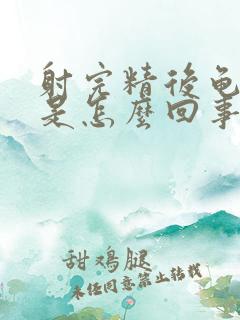 射完精後龟
是怎麽回事
甜鸡腿
未经同意禁止转载